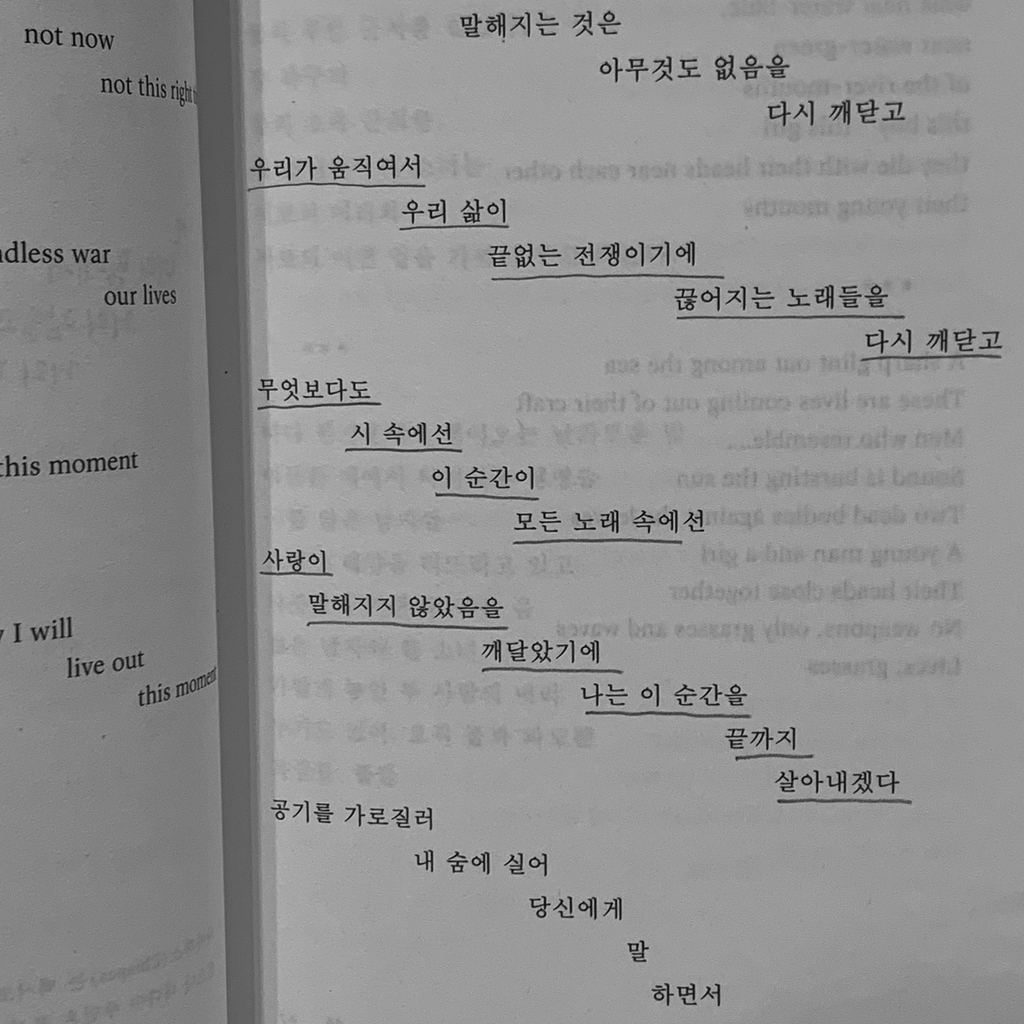 not now
not this right
endless war
our lives
this moment
I will
live out
this moment
말해지는 것은
아무것도 없음을
다시 깨닫고
우리가 움직여서
우리 삶이
끝없는 전쟁이기에
끊어지는 노래들을
다시 깨닫고
무엇보다도
시 속에선
이 순간이
모든 노래 속에선
사랑이
말해지지 않았음을
깨달았기에
나는 이 순간을
끝까지
살아내겠다
공기를 가로질러
내 숨에 실어
당신에게
말
하면서